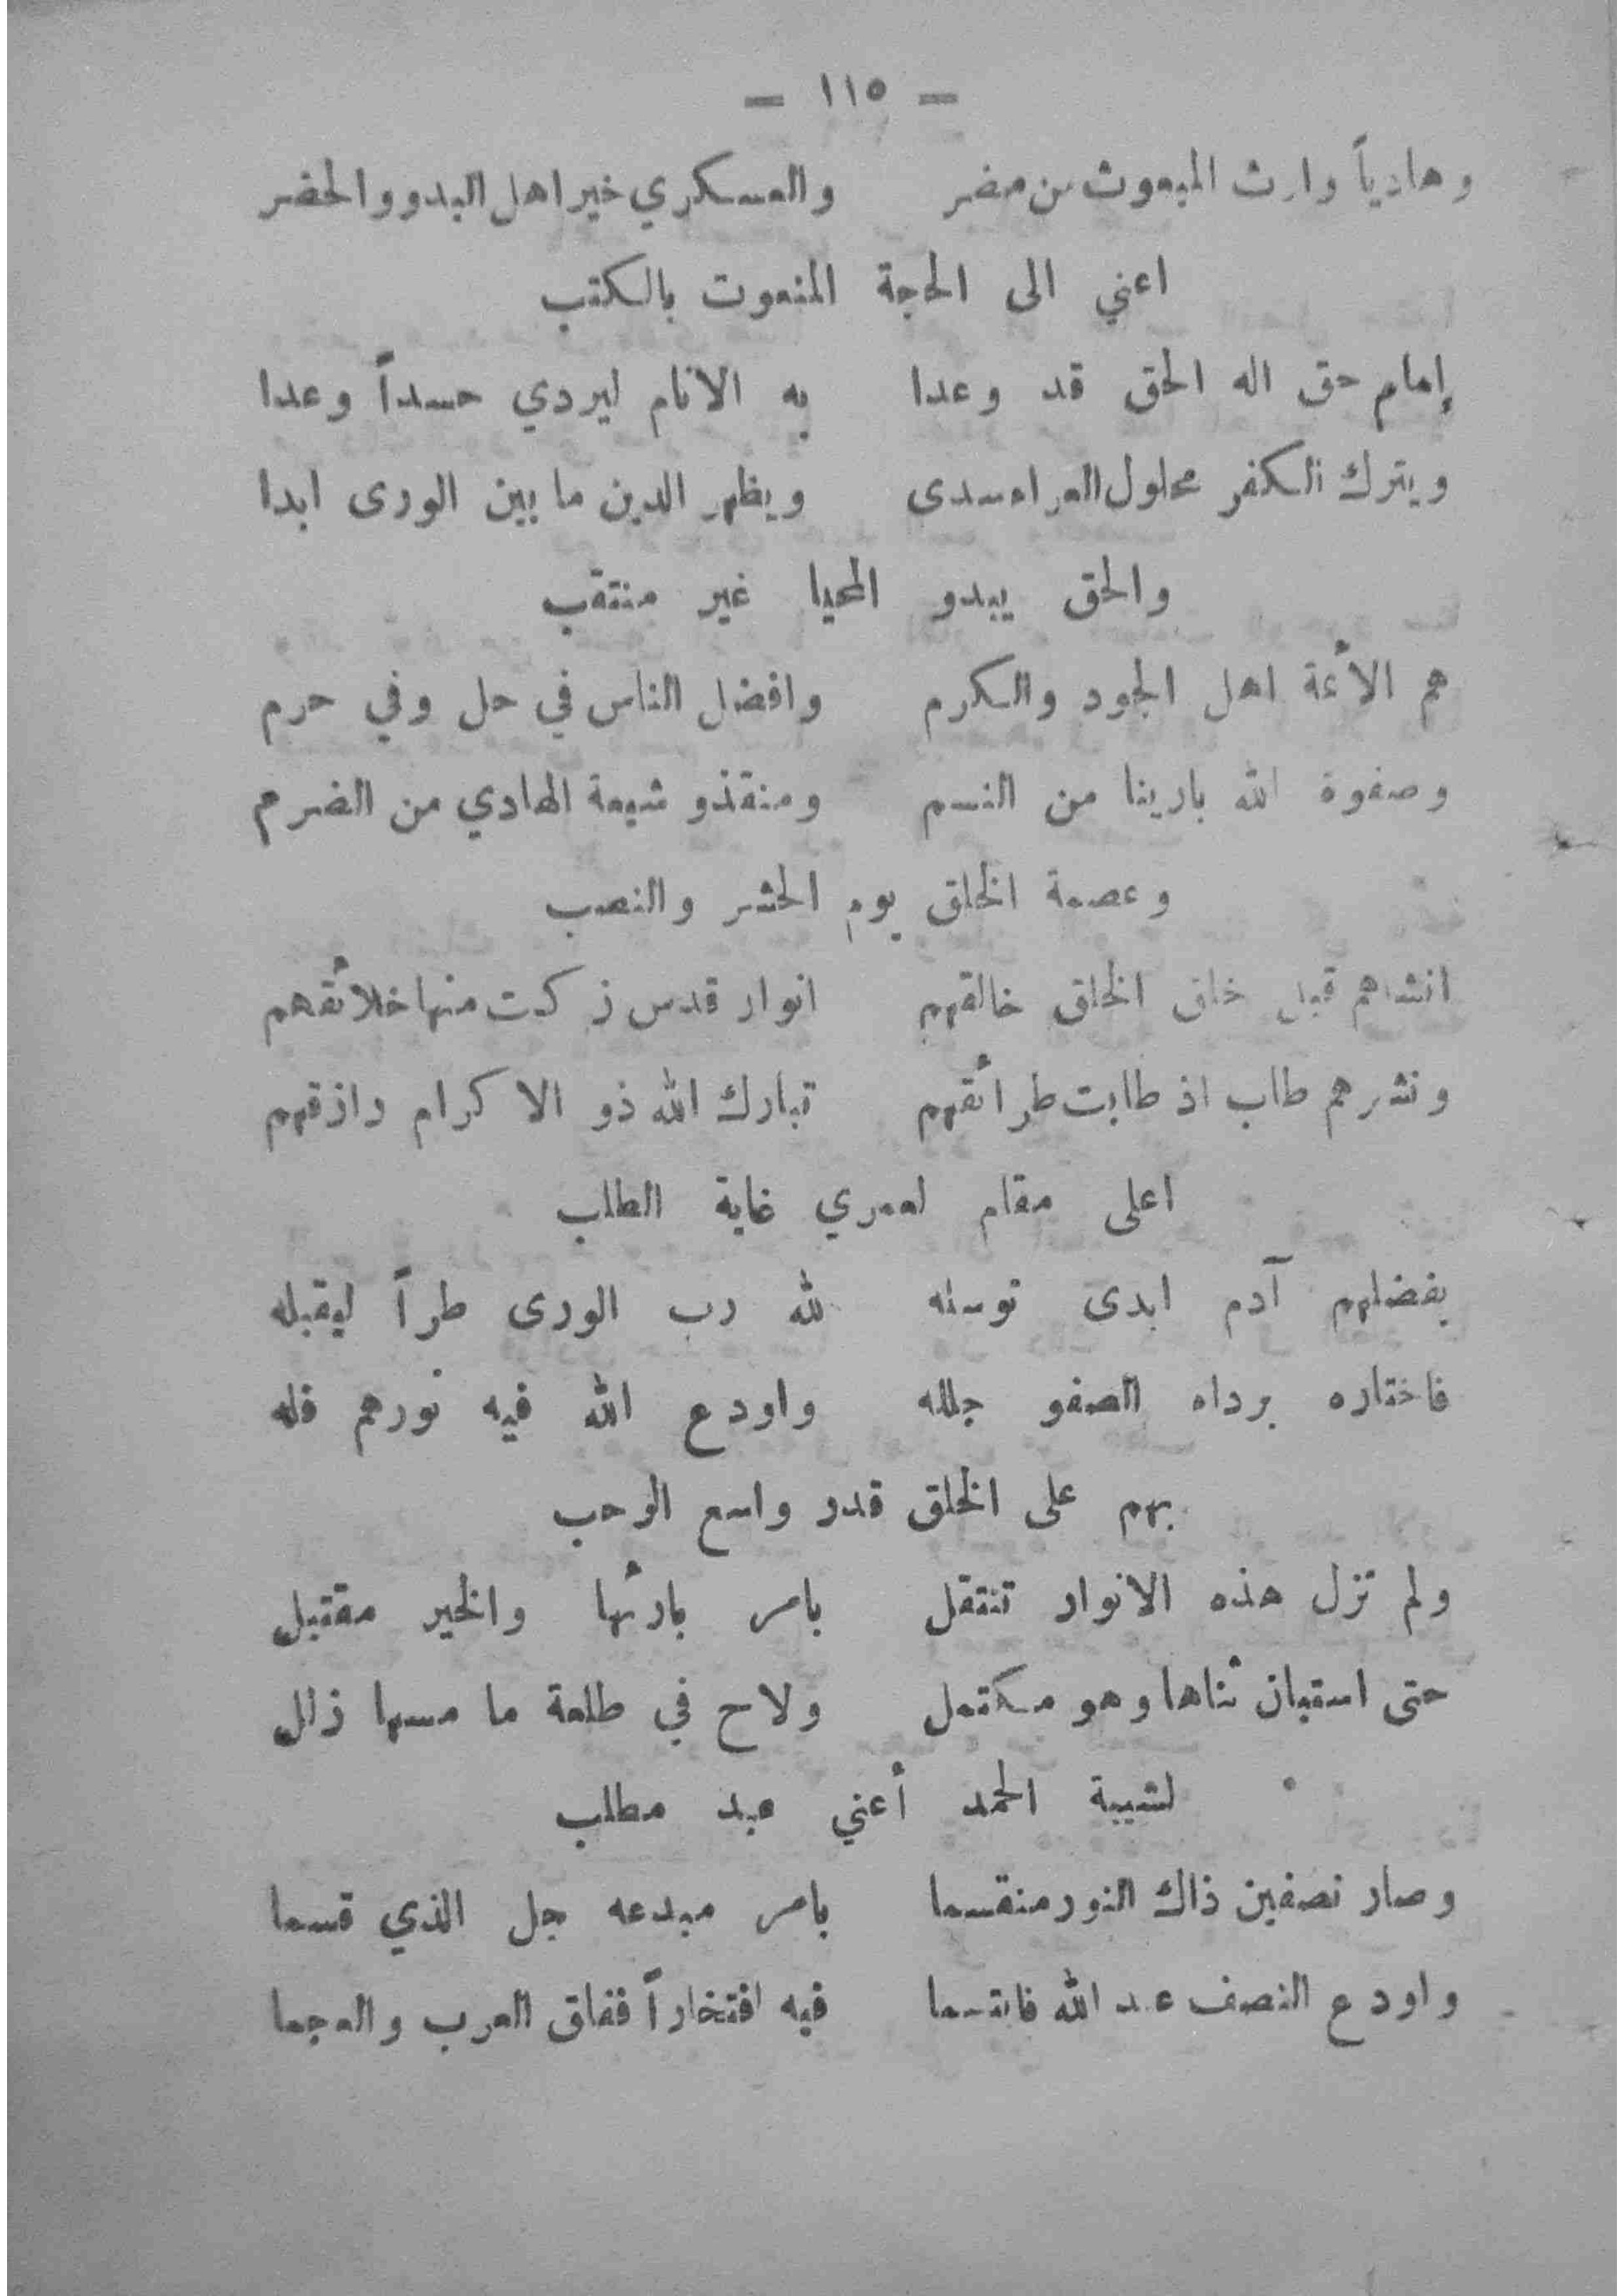 — ١١٥ —
وهادياً وارث المبعوث من مضر والعسكري خير اهل البدو والحضر
اعني الى الحجة المنعوت بالكتب
إمام حق اله الحق قد وعدا به الانام ليردي حسداً وعدا
ويترك الكفر محلول العراء سدى ويظهر الدين ما بين الورى ابدا
والحق يبدو المحيا غير منتقب
هم الأئمة اهل الجود والكرم وافضل الناس في حل وفي حرم
وصفوة الله بارينا من النسم ومنقذو شيعة الهادي من الضرم
وعصمة الخلق يوم الحشر والنصب
انشاهم قبل خلق الخلق خالقهم انوار قدس زكت منها خلائقهم
ونشرهم طاب اذ طابت طرائقهم تبارك الله ذو الاكرام رازقهم
اعلى مقام لعمري غاية الطلب
بفضلهم آدم ابدى توسله لله رب الورى طراً ليقبله
فاختاره برداء الصفو جلله واودع الله فيه نورهم فله
بهم على الخلق قدر واسع الرحب
ولم تزل هذه الانوار تنتقل بامر بارئها والخير مقتبل
حتى استبان ثناها وهو مكتمل ولاح في طلعة ما مسها زلل
لشيبة الحمد أعني عبد مطلب
وصار نصفين ذاك النور منقسما بامر مبدعه جل الذي قسما
واودع النصف عبد الله فابتسما فيه افتخاراً ففاق العرب والعجما